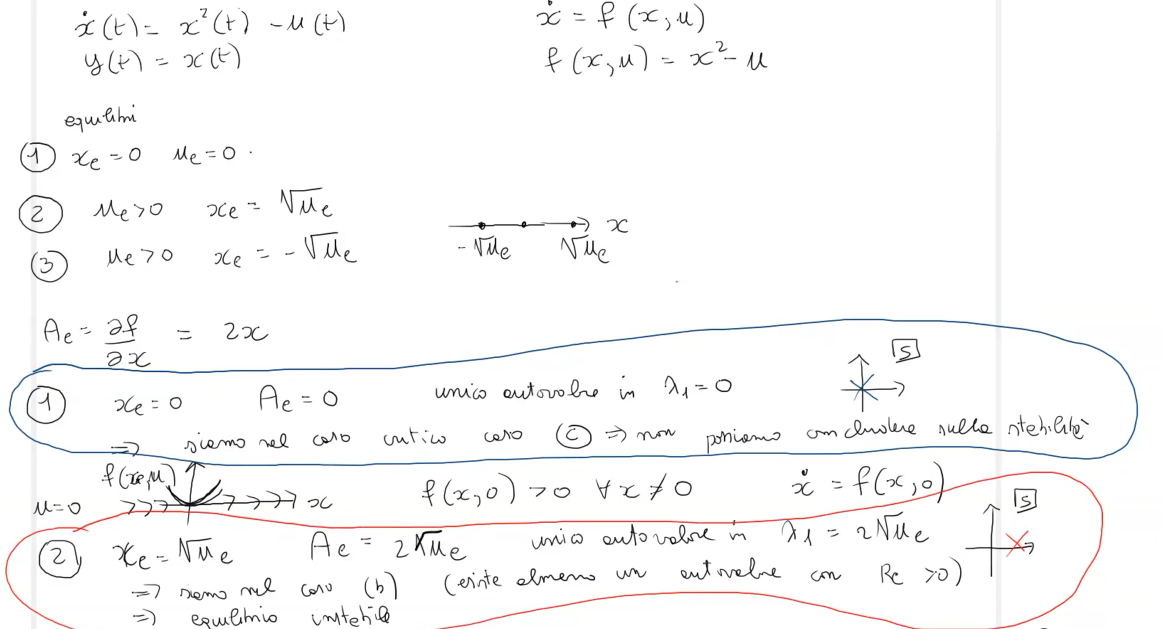 ẋ(t) = x²(t) - u(t)
y(t) = x(t)
ẋ = f(x,u)
f(x,u) = x² - u
equilibri
① x_e = 0 u_e = 0
② u_e > 0 x_e = √u_e
③ u_e > 0 x_e = -√u_e
x
-√u_e √u_e
A_e = ∂f/∂x = 2x
① x_e = 0 A_e = 0 unico autovalore in λ₁ = 0
S
⇒ siamo nel caso critico caso ⓒ ⇒ non possiamo concludere sulla stabilità
f(x,u)
u=0 x f(x,0) > 0 ∀x ≠ 0 ẋ = f(x,0)
② x_e = √u_e A_e = 2√u_e unico autovalore in λ₁ = 2√u_e
S
⇒ siamo nel caso (b) (esiste almeno un autovalore con Re > 0)
⇒ equilibrio instabile